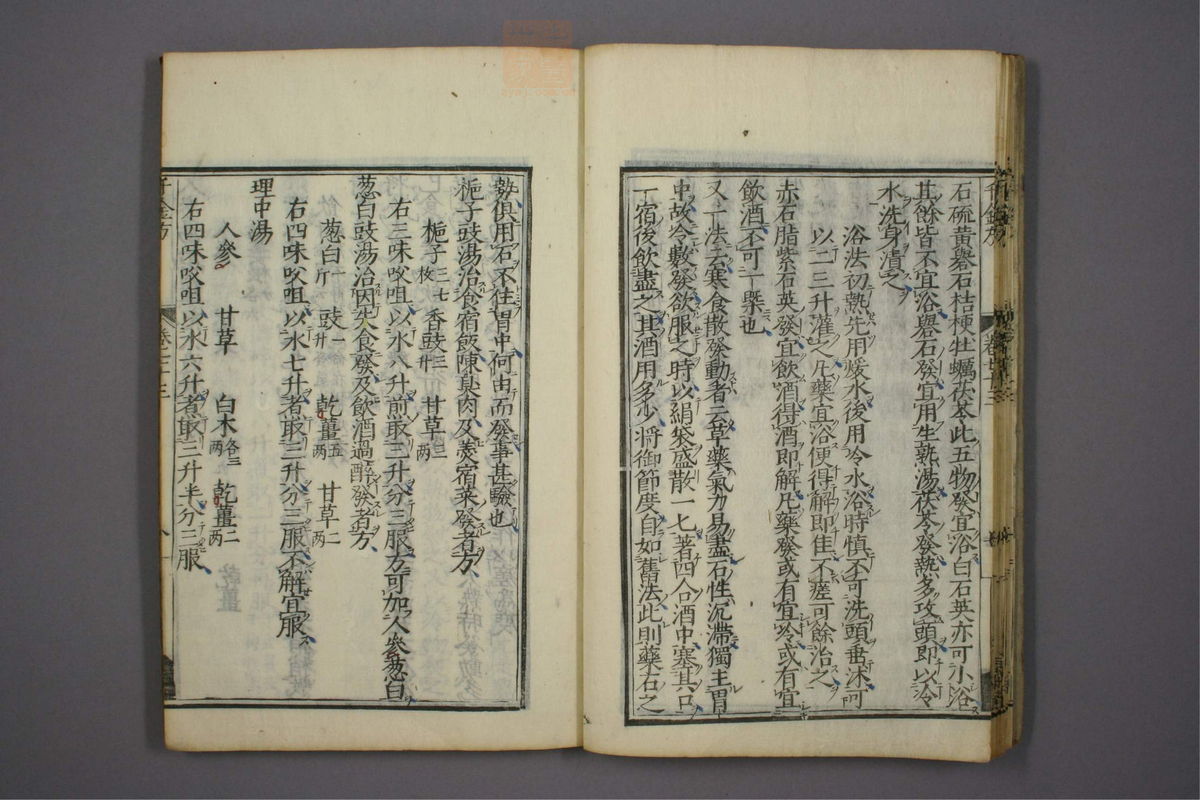 石硫黃礜石桔梗牡蠣茯苓此五物發宜浴白石英亦可小浴
其餘皆不宜浴礜石發宜用生熟湯茯苓發熱多攻頭即以冷
水洗身漬之
浴法初熱先用暖水後用冷水浴時慎不可洗頭垂沐可
以二三升灌之凡藥宜浴便得解即佳不瘥可餘治之
赤石脂紫石英發宜飲酒得酒即解凡藥發或有宜冷或有宜
飲酒不可一槩也
又一法云寒食散發動者云草藥氣力易盡石性沉滯獨主胃
中故令數發欲服之時以絹袋盛散一匕著四合酒中塞其口
一宿後飲盡之其酒用多少將御節度自如舊法此則藥石之
勢俱用石不住胃中何由而發事甚驗也
梔子豉湯治食宿飯陳臭肉及羹宿菜發者方
梔子三七枚 香豉三升 甘草三两
右三味㕮咀以水八升煎取三升分三服方可加人參葱白
葱白豉湯治因失食發及飲酒過醉發者方
葱白一斤 豉一升 乾薑五两 甘草二两
右四味㕮咀以水七升煑取三升分三服不解宜服
理中湯
人參 甘草 白术各三两 乾薑二两
右四味㕮咀以水六升煑取三升半分三服